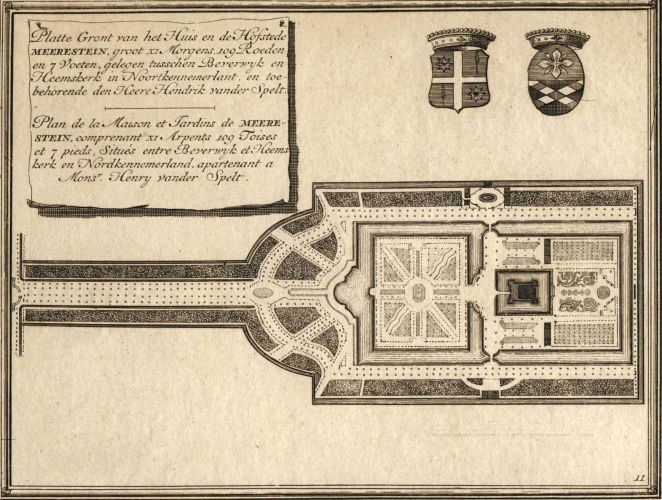 Platte Gront van het Huis en de Hofstede
MEERESTEIN, groot XI Morgens, 109 Roeden
en 7 Voeten, gelegen tusschen Beverwyk en
Heemskerk in Noortkennemerlant, en toe-
behorende den Heere Hendrik vander Spelt.
Plan de la Maison et Jardins de MEERE-
STEIN, comprenant XI Arpents 109 Toises
et 7 pieds, Situés entre Beverwyk et Heems
kerk en Nordkennemerland, apartenant a
Monsr. Henry vander Spelt.
11